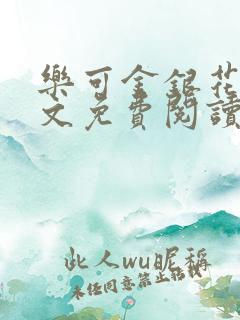 樂可金銀花
文免費閱讀
此人wu昵稱
未经同意禁止转载